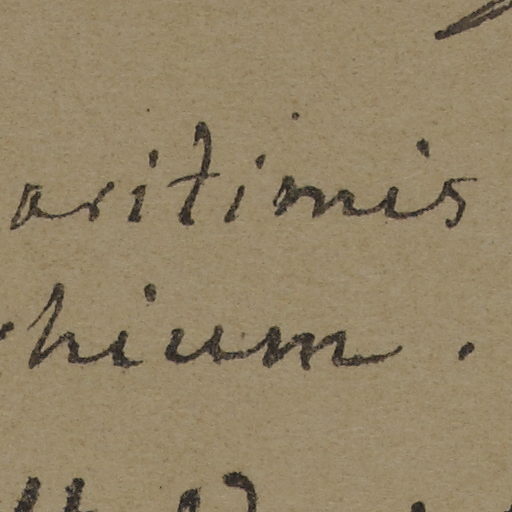 aritimis
hium.